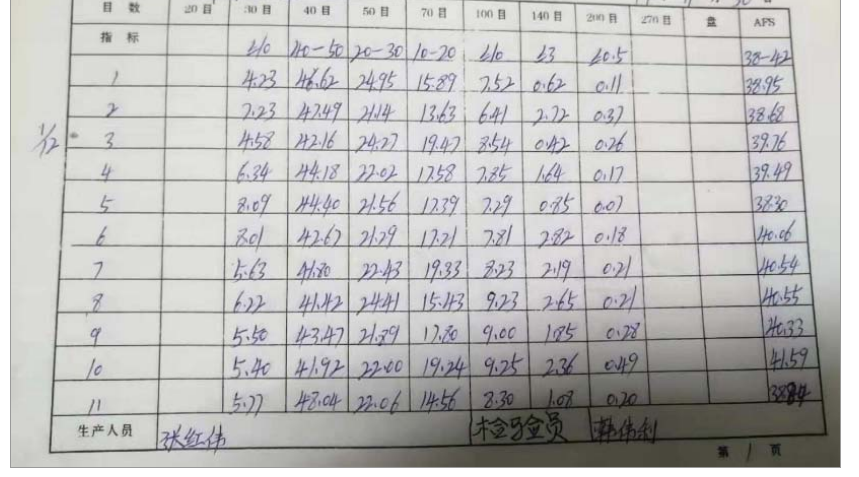 目 数 20 目 30 目 40 目 50 目 70 目 100 目 140 目 200 目 270 目 盘 AFS
指 标 ≤10 40-50 20-30 10-20 ≤10 ≤3 ≤0.5 38-42
1 4.23 46.62 24.95 15.89 7.52 0.62 0.11 38.95
2 7.23 47.49 21.14 13.63 6.41 2.72 0.37 38.68
1/12 3 4.58 42.16 24.27 19.47 8.54 0.42 0.26 39.76
4 6.34 44.18 22.02 17.58 7.85 1.64 0.17 39.49
5 8.09 44.40 21.56 17.39 7.29 0.85 0.07 38.30
6 8.01 42.67 21.29 17.21 7.81 2.82 0.18 40.06
7 5.63 41.80 22.43 19.33 8.23 2.19 0.21 40.54
8 6.22 41.42 24.41 15.43 9.23 2.65 0.21 40.55
9 5.50 43.47 21.89 17.80 9.00 1.85 0.28 40.33
10 5.40 41.92 22.00 19.24 9.25 2.36 0.49 41.59
11 5.77 48.04 22.06 14.56 8.30 1.08 0.20
生产人员 张红伟 检验员 韩伟利
第 1 页